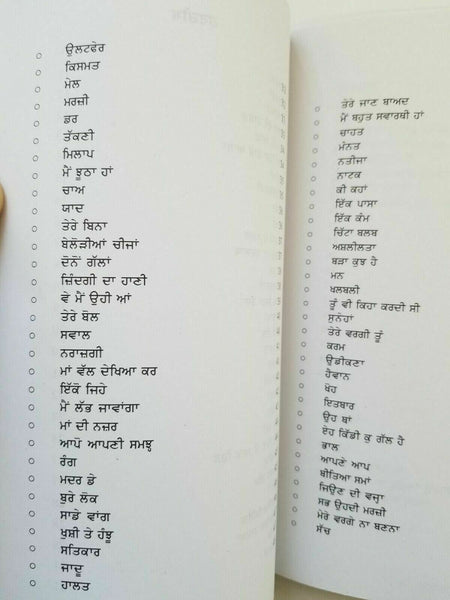 ਉਲਟਫੇਰ
ਕਿਸਮਤ
ਮੇਲ
ਮਰਜ਼ੀ
ਡਰ
ਤੱਕਣੀ
ਮਿਲਾਪ
ਮੈਂ ਝੂਠਾ ਹਾਂ
ਚਾਅ
ਯਾਦ
ਤੇਰੇ ਬਿਨਾ
ਬੇਲੋੜੀਆਂ ਚੀਜਾਂ
ਦੋਨੋਂ ਗੱਲਾਂ
ਜ਼ਿੰਦਗੀ ਦਾ ਹਾਣੀ
ਵੇ ਮੈਂ ਉਹੀ ਆਂ
ਤੇਰੇ ਬੋਲ
ਸਵਾਲ
ਨਰਾਜ਼ਗੀ
ਮਾਂ ਵੱਲ ਦੇਖਿਆ ਕਰ
ਇੱਕੋ ਜਿਹੇ
ਮੈਂ ਲੱਭ ਜਾਵਾਂਗਾ
ਮਾਂ ਦੀ ਨਜ਼ਰ
ਆਪੋ ਆਪਣੀ ਸਮਝ
ਰੰਗ
ਮਦਰ ਡੇ
ਬੁਰੇ ਲੋਕ
ਸਾਡੇ ਵਾਂਗ
ਖੁਸ਼ੀ ਤੇ ਹੰਝੂ
ਸਤਿਕਾਰ
ਜਾਦੂ
ਹਾਲਤ
ਤੇਰੇ ਜਾਣ ਬਾਅਦ
ਮੈਂ ਬਹੁਤ ਸਵਾਰਥੀ ਹਾਂ
ਚਾਹਤ
ਮੰਨਤ
ਨਤੀਜਾ
ਨਾਟਕ
ਕੀ ਕਹਾਂ
ਇੱਕ ਪਾਸਾ
ਇੱਕ ਕੰਮ
ਚਿੱਟਾ ਬਲਬ
ਅਸ਼ਲੀਲਤਾ
ਬੜਾ ਕੁਝ ਹੈ
ਮਨ
ਖਲਬਲੀ
ਤੂੰ ਵੀ ਕਿਹਾ ਕਰਦੀ ਸੀ
ਸੁਨੇਹਾਂ
ਤੇਰੇ ਵਰਗੀ ਤੂੰ
ਕਰਮ
ਉਡੀਕਣਾ
ਹੈਵਾਨ
ਖੋਹ
ਇਤਬਾਰ
ਉਹ ਥਾਂ
ਏਹ ਕਿੱਡੀ ਕੁ ਗੱਲ ਹੈ
ਭਾਲ
ਆਪਣੇ ਆਪ
ਬੀਤਿਆ ਸਮਾਂ
ਜਿਉਣ ਦੀ ਵਜ੍ਹਾ
ਸਭ ਉਹਦੀ ਮਰਜ਼ੀ
ਮੇਰੇ ਵਰਗੇ ਨਾ ਬਣਨਾ
ਸੱਚ